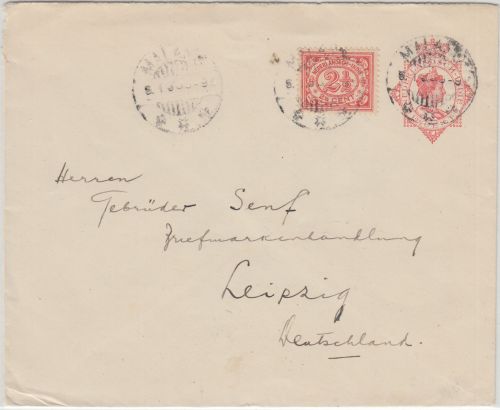 2½
CENT
Herren
Gebrüder Senf
Briefmarkenhandlung
Leipzig
Deutschland.